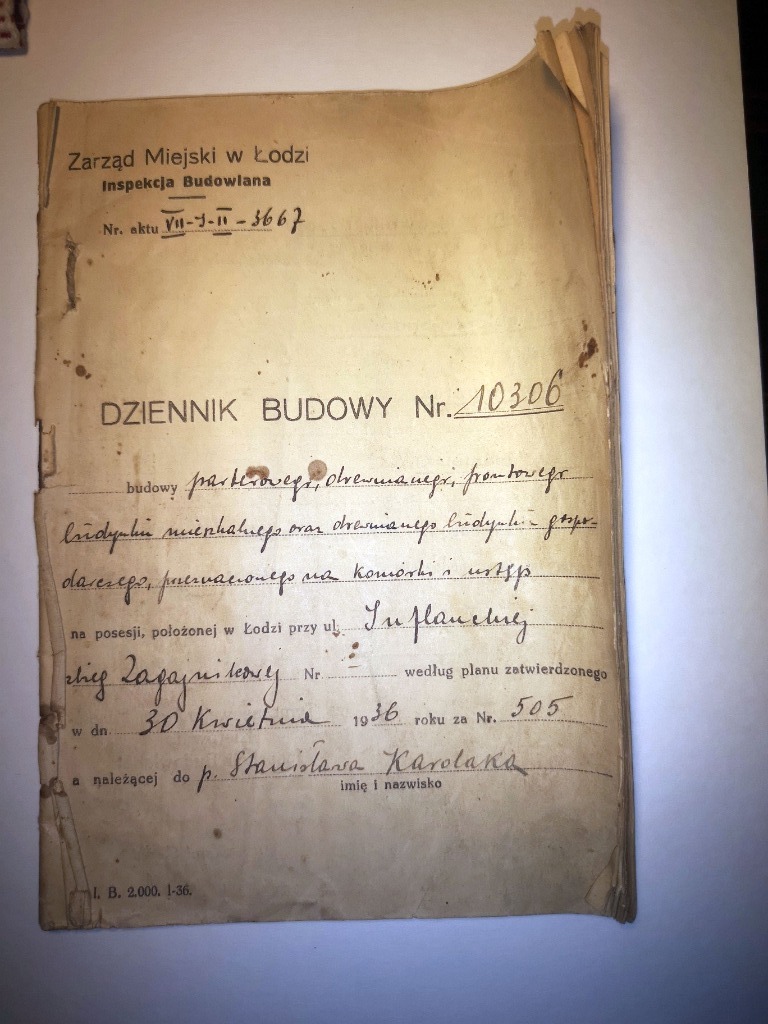 Zarząd Miejski w Łodzi
Inspekcja Budowlana
Nr. aktu VII-J-II-3667
DZIENNIK BUDOWY Nr. 10306
budowy parterowego, drewnianego, frontowego
budynku mieszkalnego oraz drewnianego budynku gospo-
darczego, przeznaczonego na komórki i ustęp
na posesji, położonej w Łodzi przy ul. Inflanckiej
zbieg Zagajnikowej Nr. — według planu zatwierdzonego
w dn. 30 Kwietnia 1936 roku za Nr. 505
a należącej do p. Stanisława Karolaka
imię i nazwisko
I. B. 2.000. I-36.